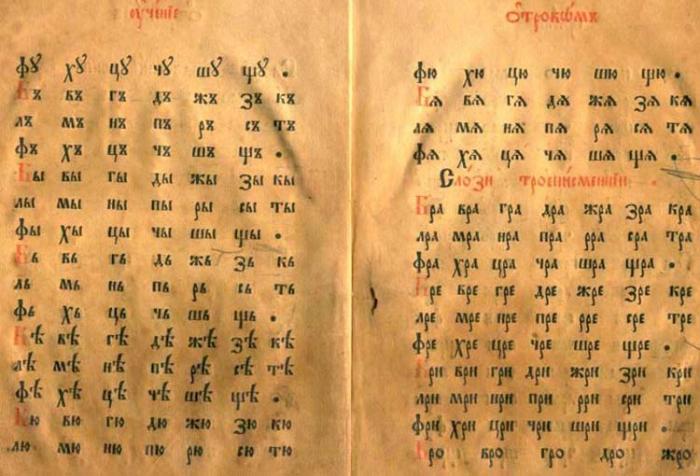 оученїе
фꙋ хꙋ цꙋ чꙋ шꙋ щꙋ .
Бъ въ гъ дъ жъ зъ къ
лъ мъ нъ пъ ръ съ тъ
фъ хъ цъ чъ шъ щъ .
Бы вы гы ды жы зы кы
лы мы ны пы ры сы ты
фы хы цы чы шы щы .
Бь вь гь дь жь зь кь
ль мь нь пь рь сь ть
фь хь ць чь шь щь .
Бѣ вѣ гѣ дѣ жѣ зѣ кѣ
лѣ мѣ нѣ пѣ рѣ сѣ тѣ
фѣ хѣ цѣ чѣ шѣ щѣ .
Бю вю гю дю жю зю кю
лю мю ню пю рю сю тю
ѻтрокѡмъ
фю хю цю чю шю щю .
Бѧ вѧ гѧ дѧ жѧ зѧ кѧ
лѧ мѧ нѧ пѧ рѧ сѧ тѧ
фѧ хѧ цѧ чѧ шѧ щѧ .
Слози троеписменнїи .
Бра вра гра дра жра зра кра
лра мра нра пра рра сра тра
фра хра цра чра шра щра .
Бре вре гре дре жре зре кре
лре мре нре пре рре сре тре
фре хре цре чре шре щре .
Бри ври гри дри жри зри кри
лри мри нри при рри сри три
фри хри цри чри шри щри .
Бро вро гро дро жро